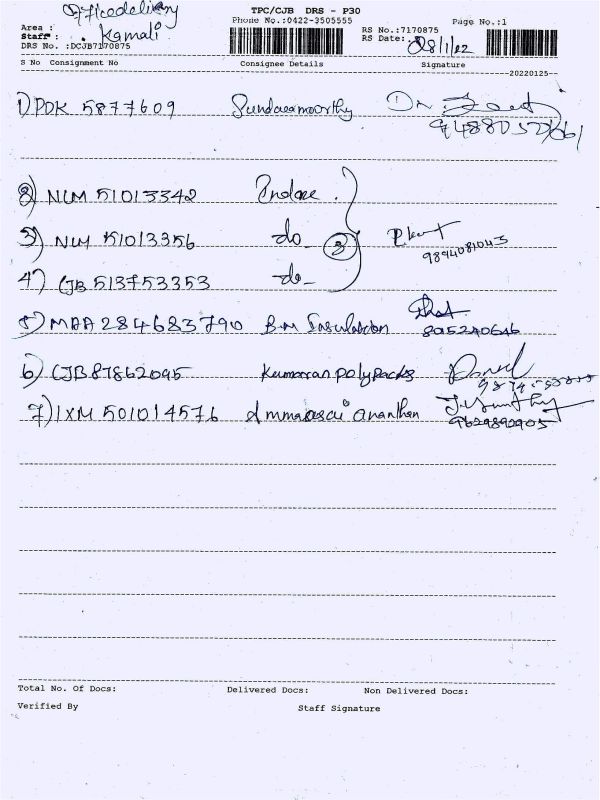 Officedelivery
TPC/CJB DRS - P30
Area : Phone No.:0422-3505555 Page No.:1
Staff : Kamali. RS No.:7170875
DRS No. :DCJB7170875 RS Date: 28/1/22
S No Consignment No Consignee Details Signature
20220125
1) PDK 5877609 Sundaramoorthy
2) NLM 51013342 Indore.
3) NLM 51013356 do 3
9894081043
4) CJB 513753353 do
5) MAA 284683790 B.M Insulation
8015240646
6) CJB87862095 Kumaran polypacks
7) IXM 501014576 Ammaarasi Ananthan
9629892905
Total No. Of Docs: Delivered Docs: Non Delivered Docs:
Verified By Staff Signature